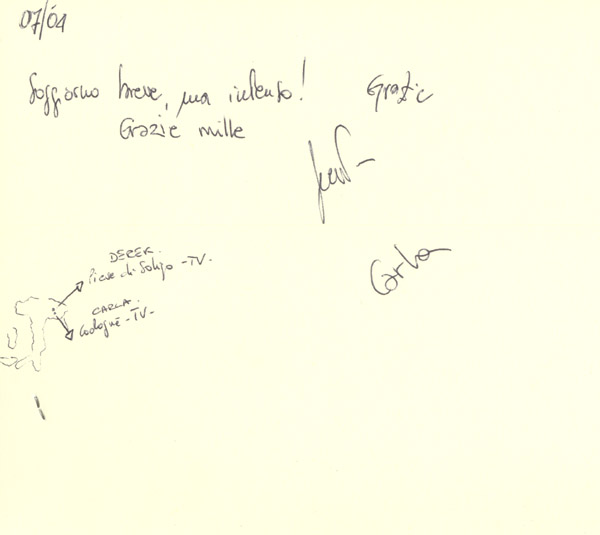 07/04
Soggiorno breve, ma intenso! Grazie
Grazie mille
Carla
DEREK.
Pieve di Soligo -TV-
CARLA.
Codognè -TV-